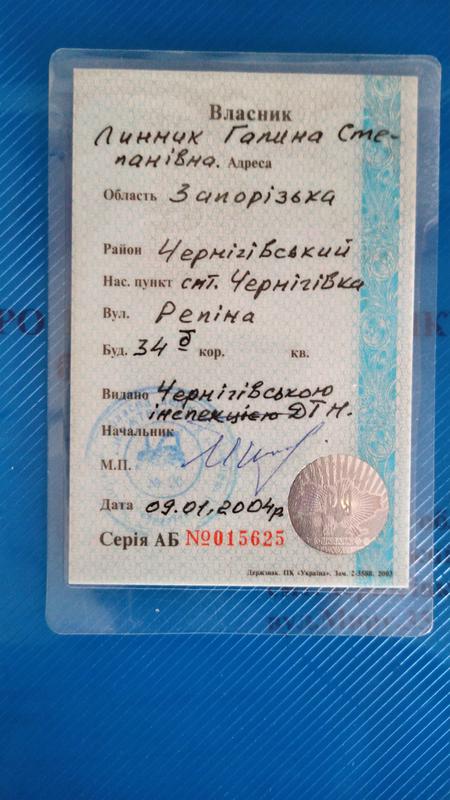 Власник
Линник Галина Сте-
панівна. Адреса
Область Запорізька
Район Чернігівський
Нас. пункт смт. Чернігівка
Вул. Репіна
Буд. 34 б кор. кв.
Видано Чернігівською
інспекцією ДТН.
Начальник
М.П.
Дата 09.01.2004р
Серія АБ №015625
Держзнак. ПК «Україна». Зам. 2-3588. 2003